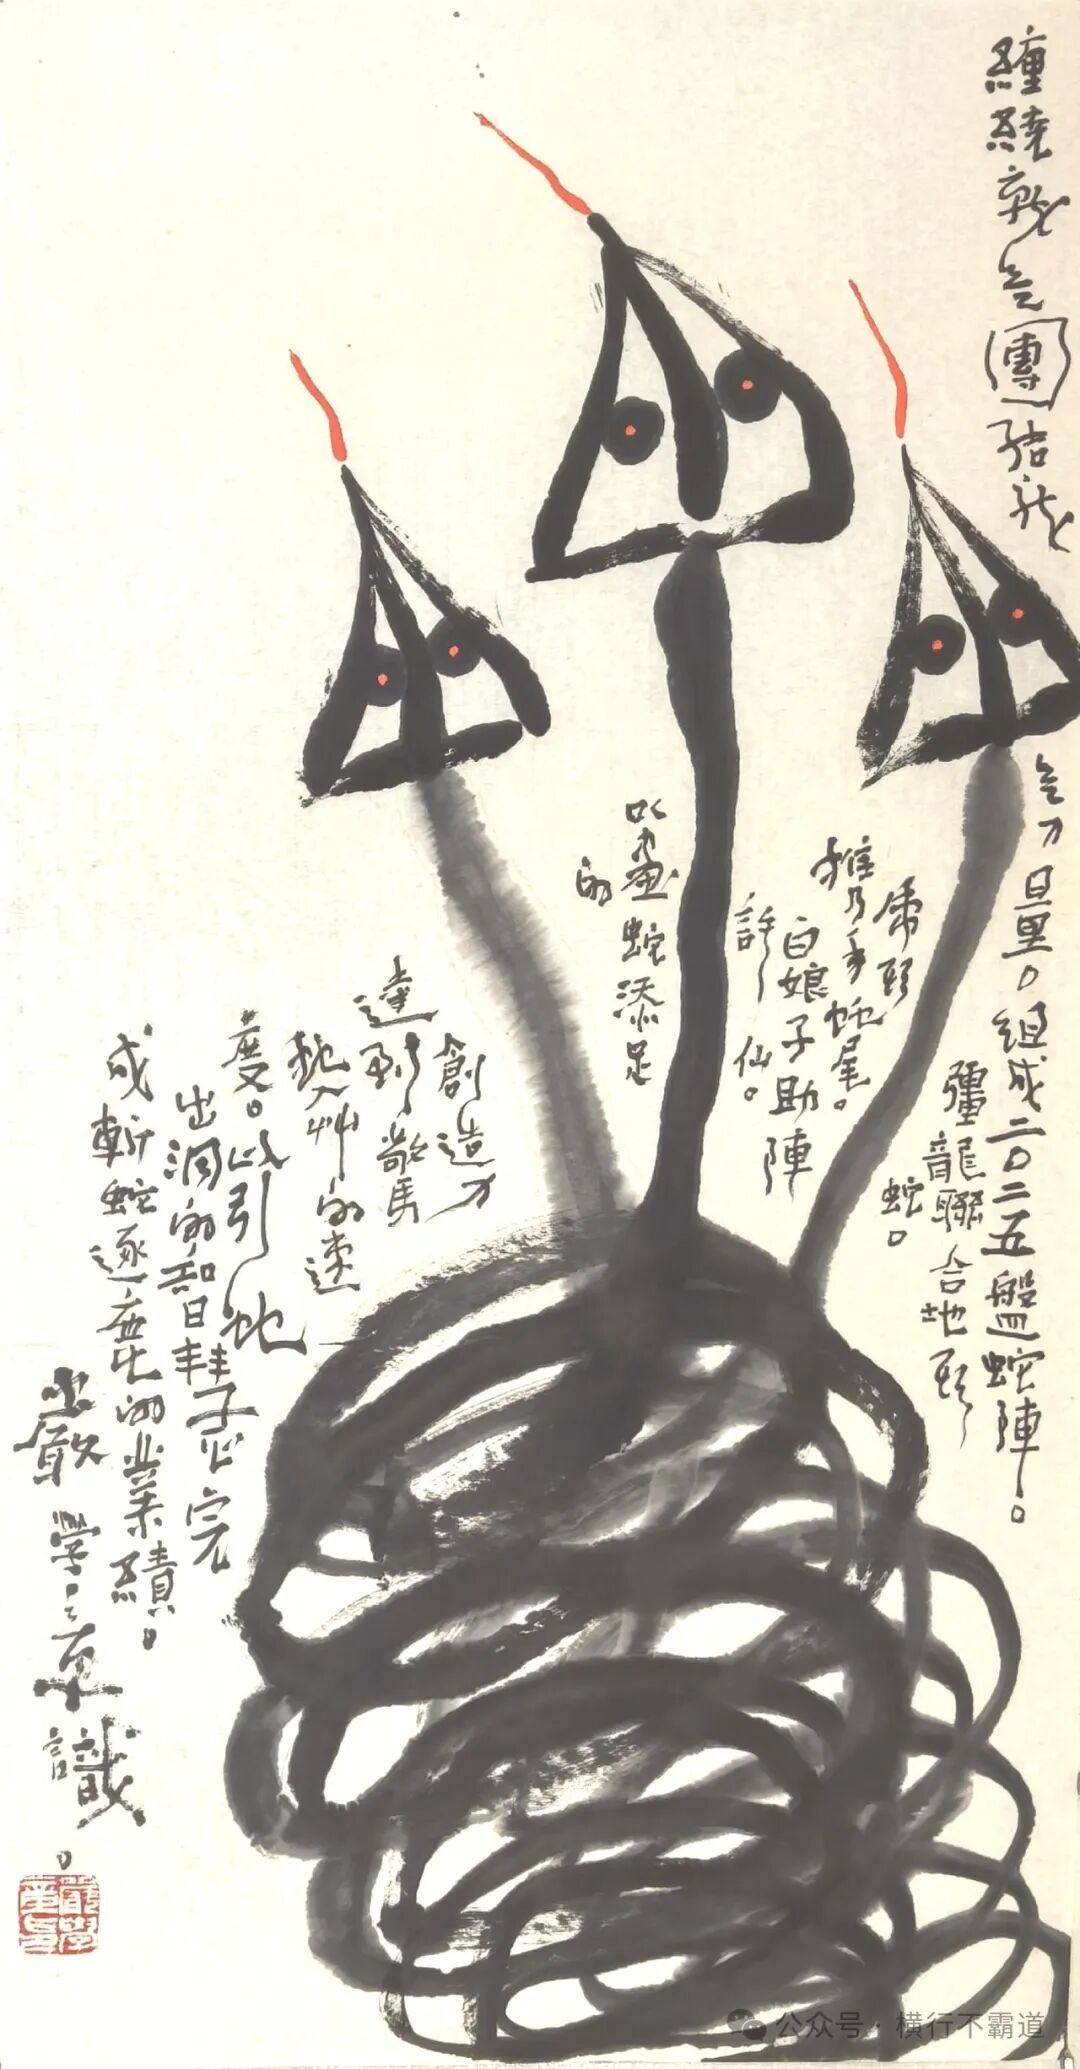 纏繞就是團結就
是力量。組成二〇二五盤蛇陣。
彊龍聯合地頭
蛇。
虎頭
推乃手蛇尾。
白娘子助陣
許仙。
以畫蛇添足
的
創造力
達到驚馬
執入艸的速
度。以引蛇
出洞的智慧完
成斬蛇逐鹿的業績。
嚴學章識。
公众号·横行不霸道